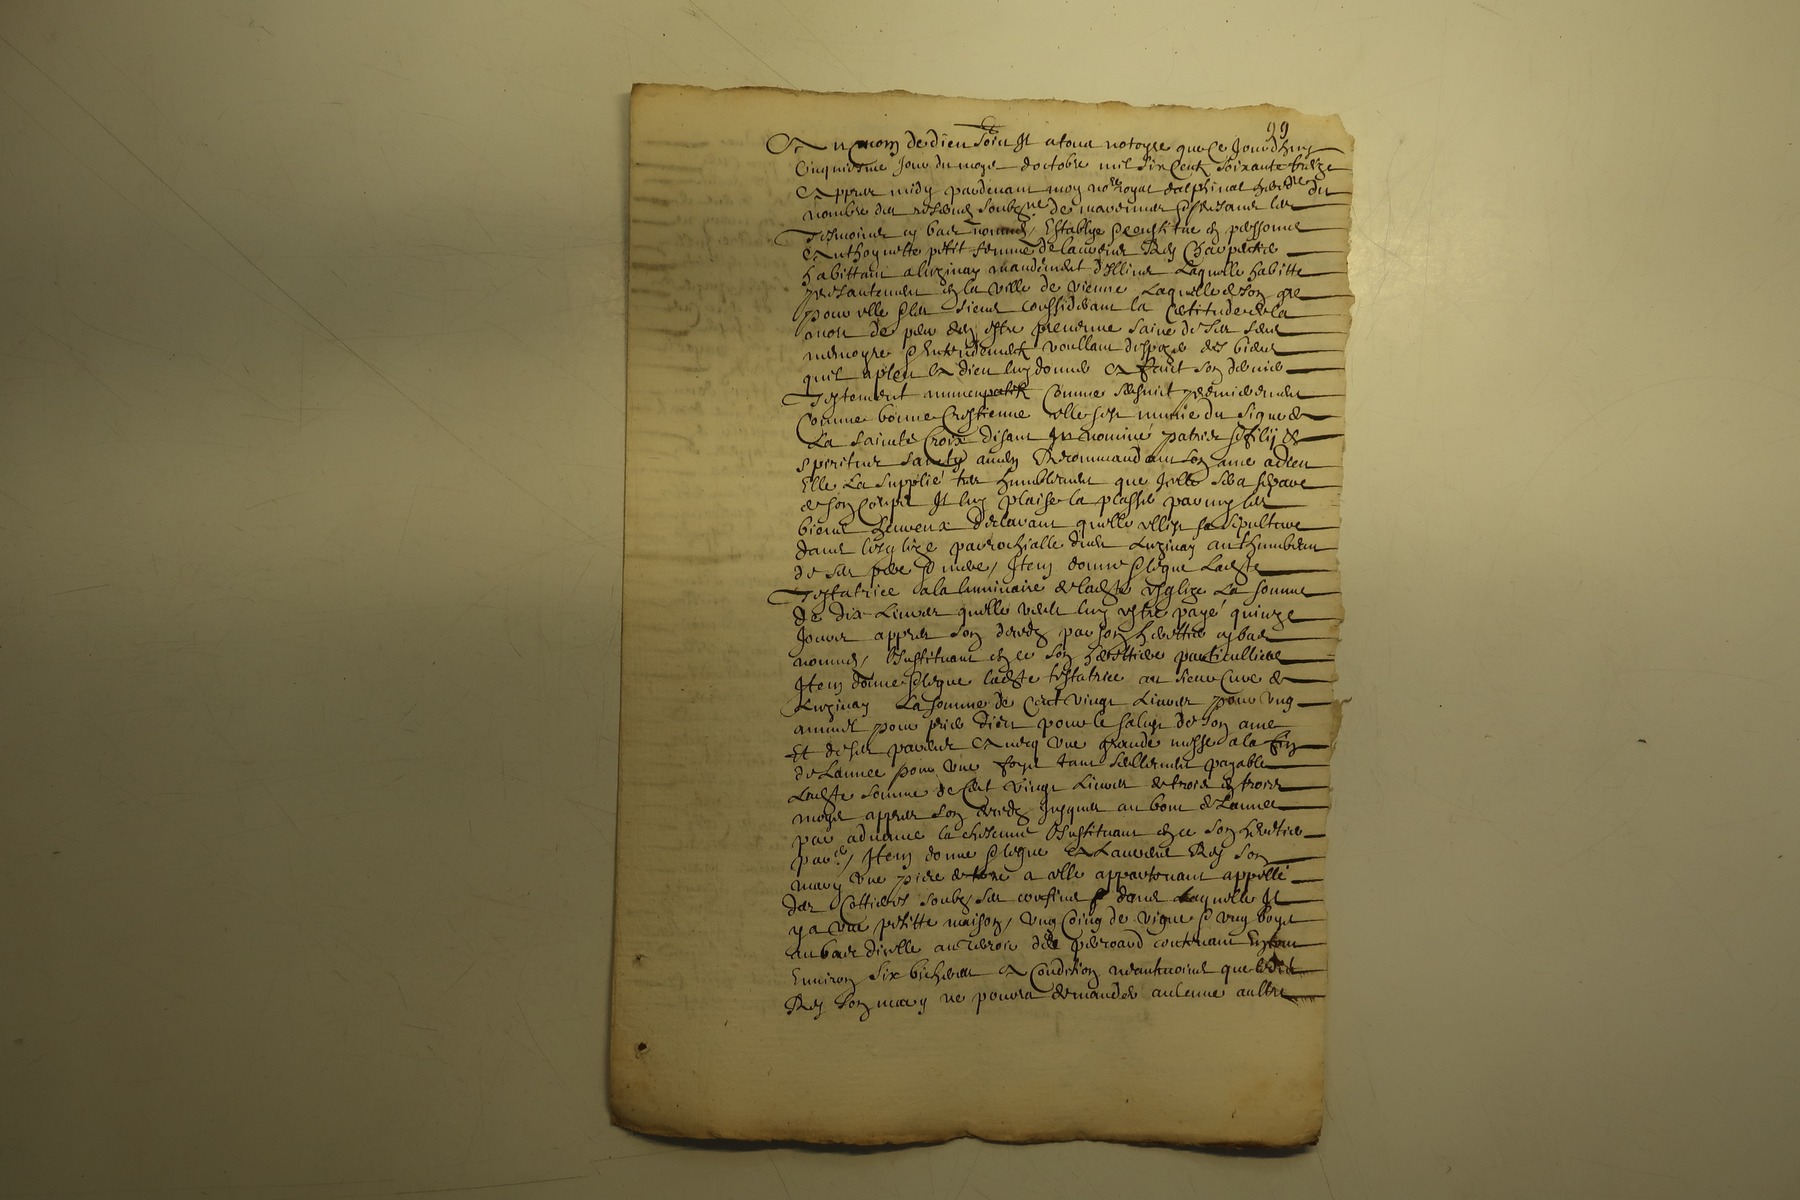 99
Au nom de dieu soit Il a tous notoyre que Ce Jourdhuy
Cinquiesme Jour du moys doctobre mil six Cent soixante treize
Appres midy pardevant moy no.re royal dalphinal heredre du
nombre des reserves soubzne de mavenues et presant les
Tesmoins cy bas nommes, Establye Constitue en perssonne
Anthoynette petit femme de laurens Rey Charpentier
habittant a luzinay mandement dillins Laquelle habitte
presantement en la ville de vienne Laquelle de son gre
pour elle et les siens conssiderant la Certitude de la
mort de peur den estre prevenue saine de ses sens
memoyre et Entendement voullant disposer des biens
quil a pleu a dieu luy donner A faict son dernier
Testement nuncupatif Comme sensuit premierement
Comme bonne Crestienne elle sest munie du signe de
La sainte Croix disant In nomine patris et filij et
spiritus sancty amen Recommandant son ame a dieu
Elle La supplie tres humblement que Icelle sera separe
de son Corps Il luy plaise la plasser parmy les
biens heureux declarant quelle ellist sa sepulture
dans lesglize parrochialle dudt Luzinay au thumbeau
de ses pere et mere, Item donne et legue Ladte
Testatrice a la luminaire de ladte esglize La somme
de dix Livres quelle veult luy estre paye quinze
Jours appres son deceds par son herettier cy bas
nomme, Instituant en ce son herettiere particulliere
Item donne et legue ladte testatrice au sieur Cure de
Luzinay La somme de Cent vingt Livres pour ung
annuel pour prier dieu pour le salut de son ame
Et de ses parens Avecq une grande messe a la fin
de Lannee pour une foys tant seullement payable
Ladte somme de Cent vingt Livres de trois en trois
moys appres son deceds Jusques au bout de Lannee
par advance la chesenne Instituant en ce son heretier
par.er, Item donne et legue A Laurens Rey son
mary une piece de terre a elle appartenant appelle
des Cottieres soubz ses confins dans laquelle Il
y a une petitte maison, ung Coing de vigne et ung boys
au bas dicelle au terroir de perroard contenant En tout
Environ six bicheres A Condition neantmoins que ledit
Rey son mary ne pourra demander aulcune aultre